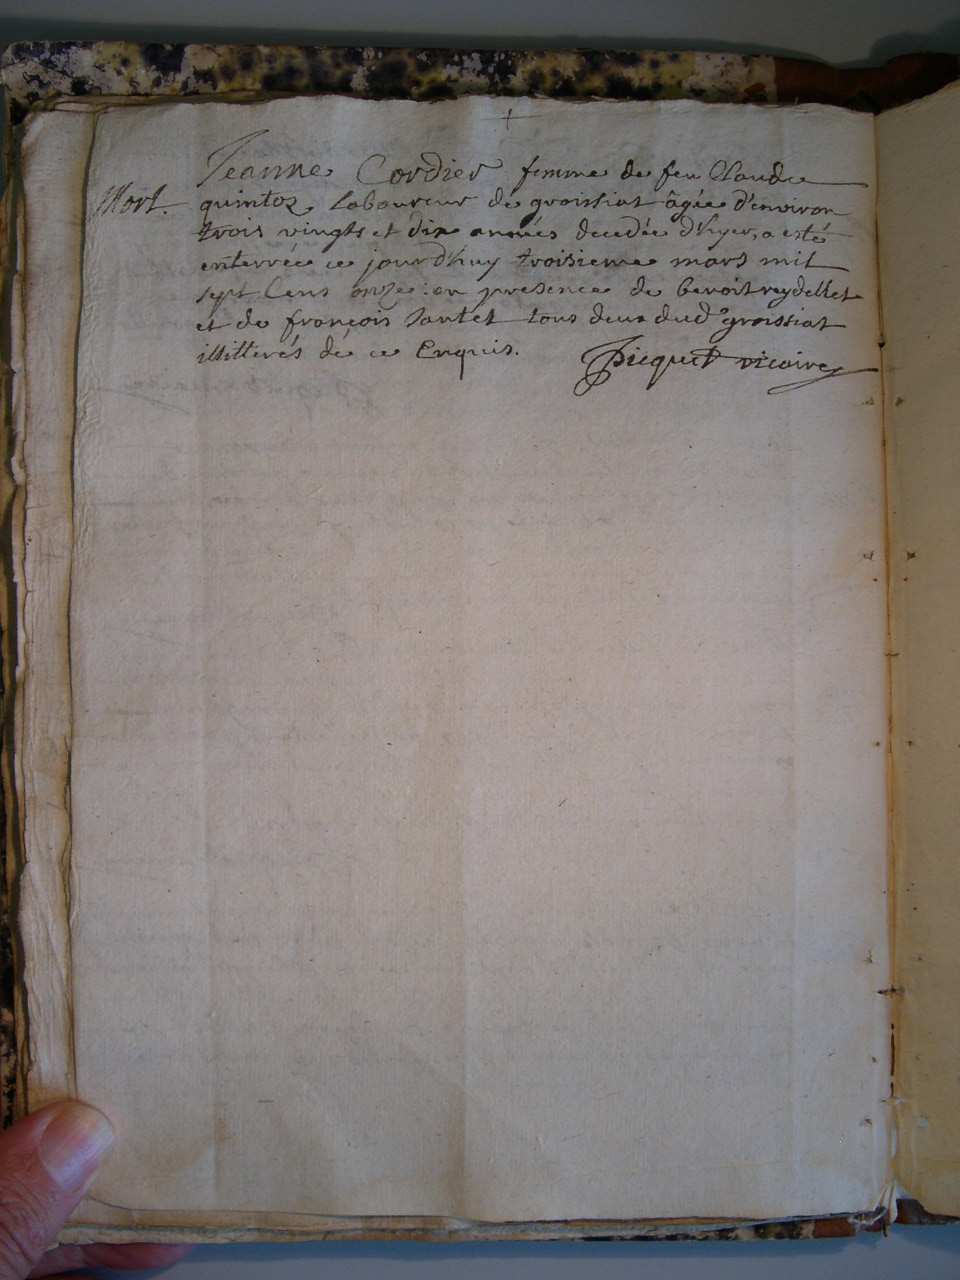 Jeanne Cordier femme de feu Claude
Mort. quintoz laboureur de groissiat âgée d'environ
trois vingts et dix années decedée d'hyer, a esté
enterrée ce jourd'huy troisieme mars mil
sept cens onze : en presence de benoit reydellet
et de françois tous deux dud groissiat
illitterés de ce Enquis. Picquet vicaire